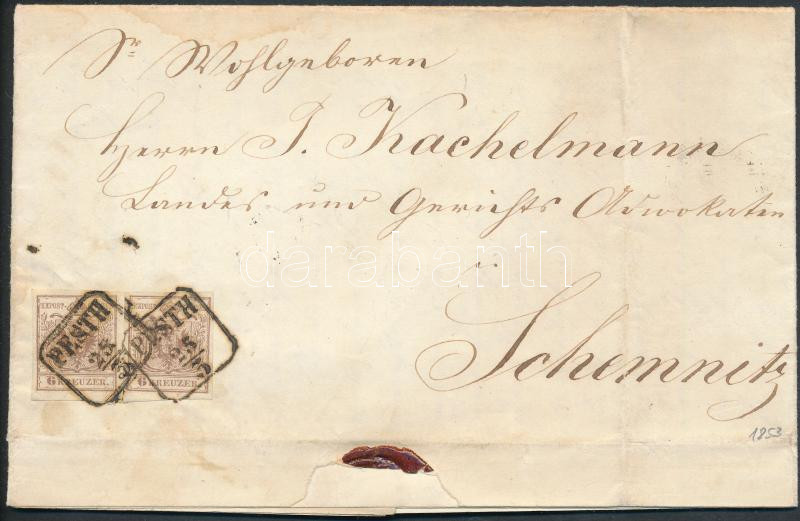 Sr Wohlgeboren
Herrn J. Kachelmann
Landes und Gerichts Advokaten
in
Schemnitz
darabanth
KKPOST-
KKPOST-
PESTH PESTH
25/5 25/5
6 KREUZER. 6 KREUZER.
1853